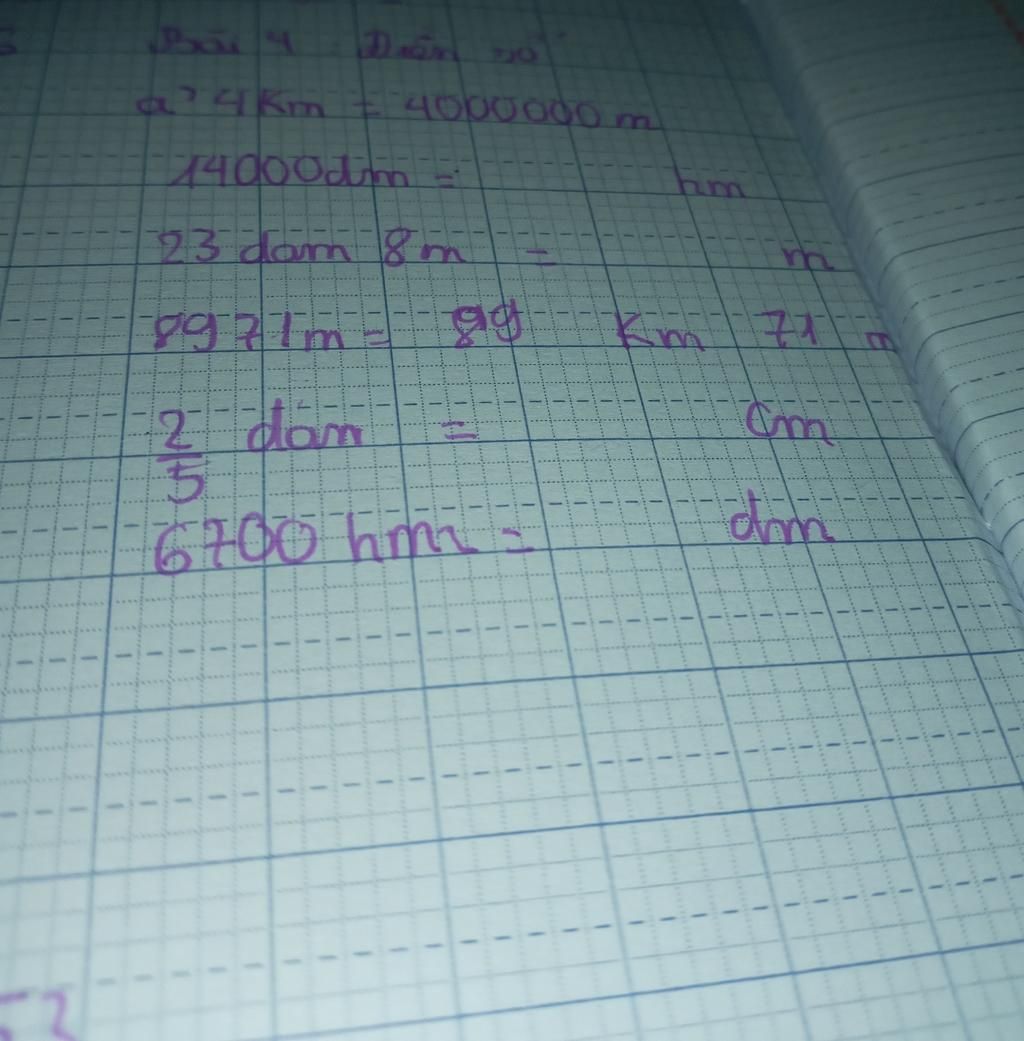 Bài 4 Điền số
a) 4 Km = 4000000 m
14000dm = hm
23 dam 8m = m
8971m = 89 Km 71 m
2/5 dam = Cm
6700 hm = dm